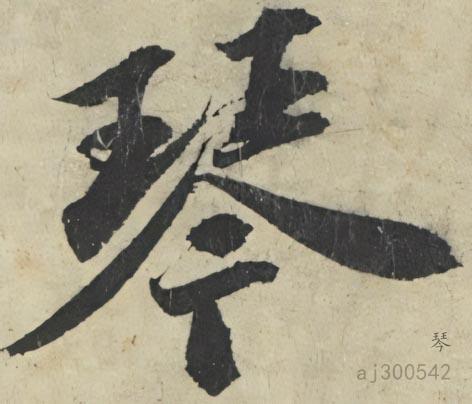 琴
琴
aj300542